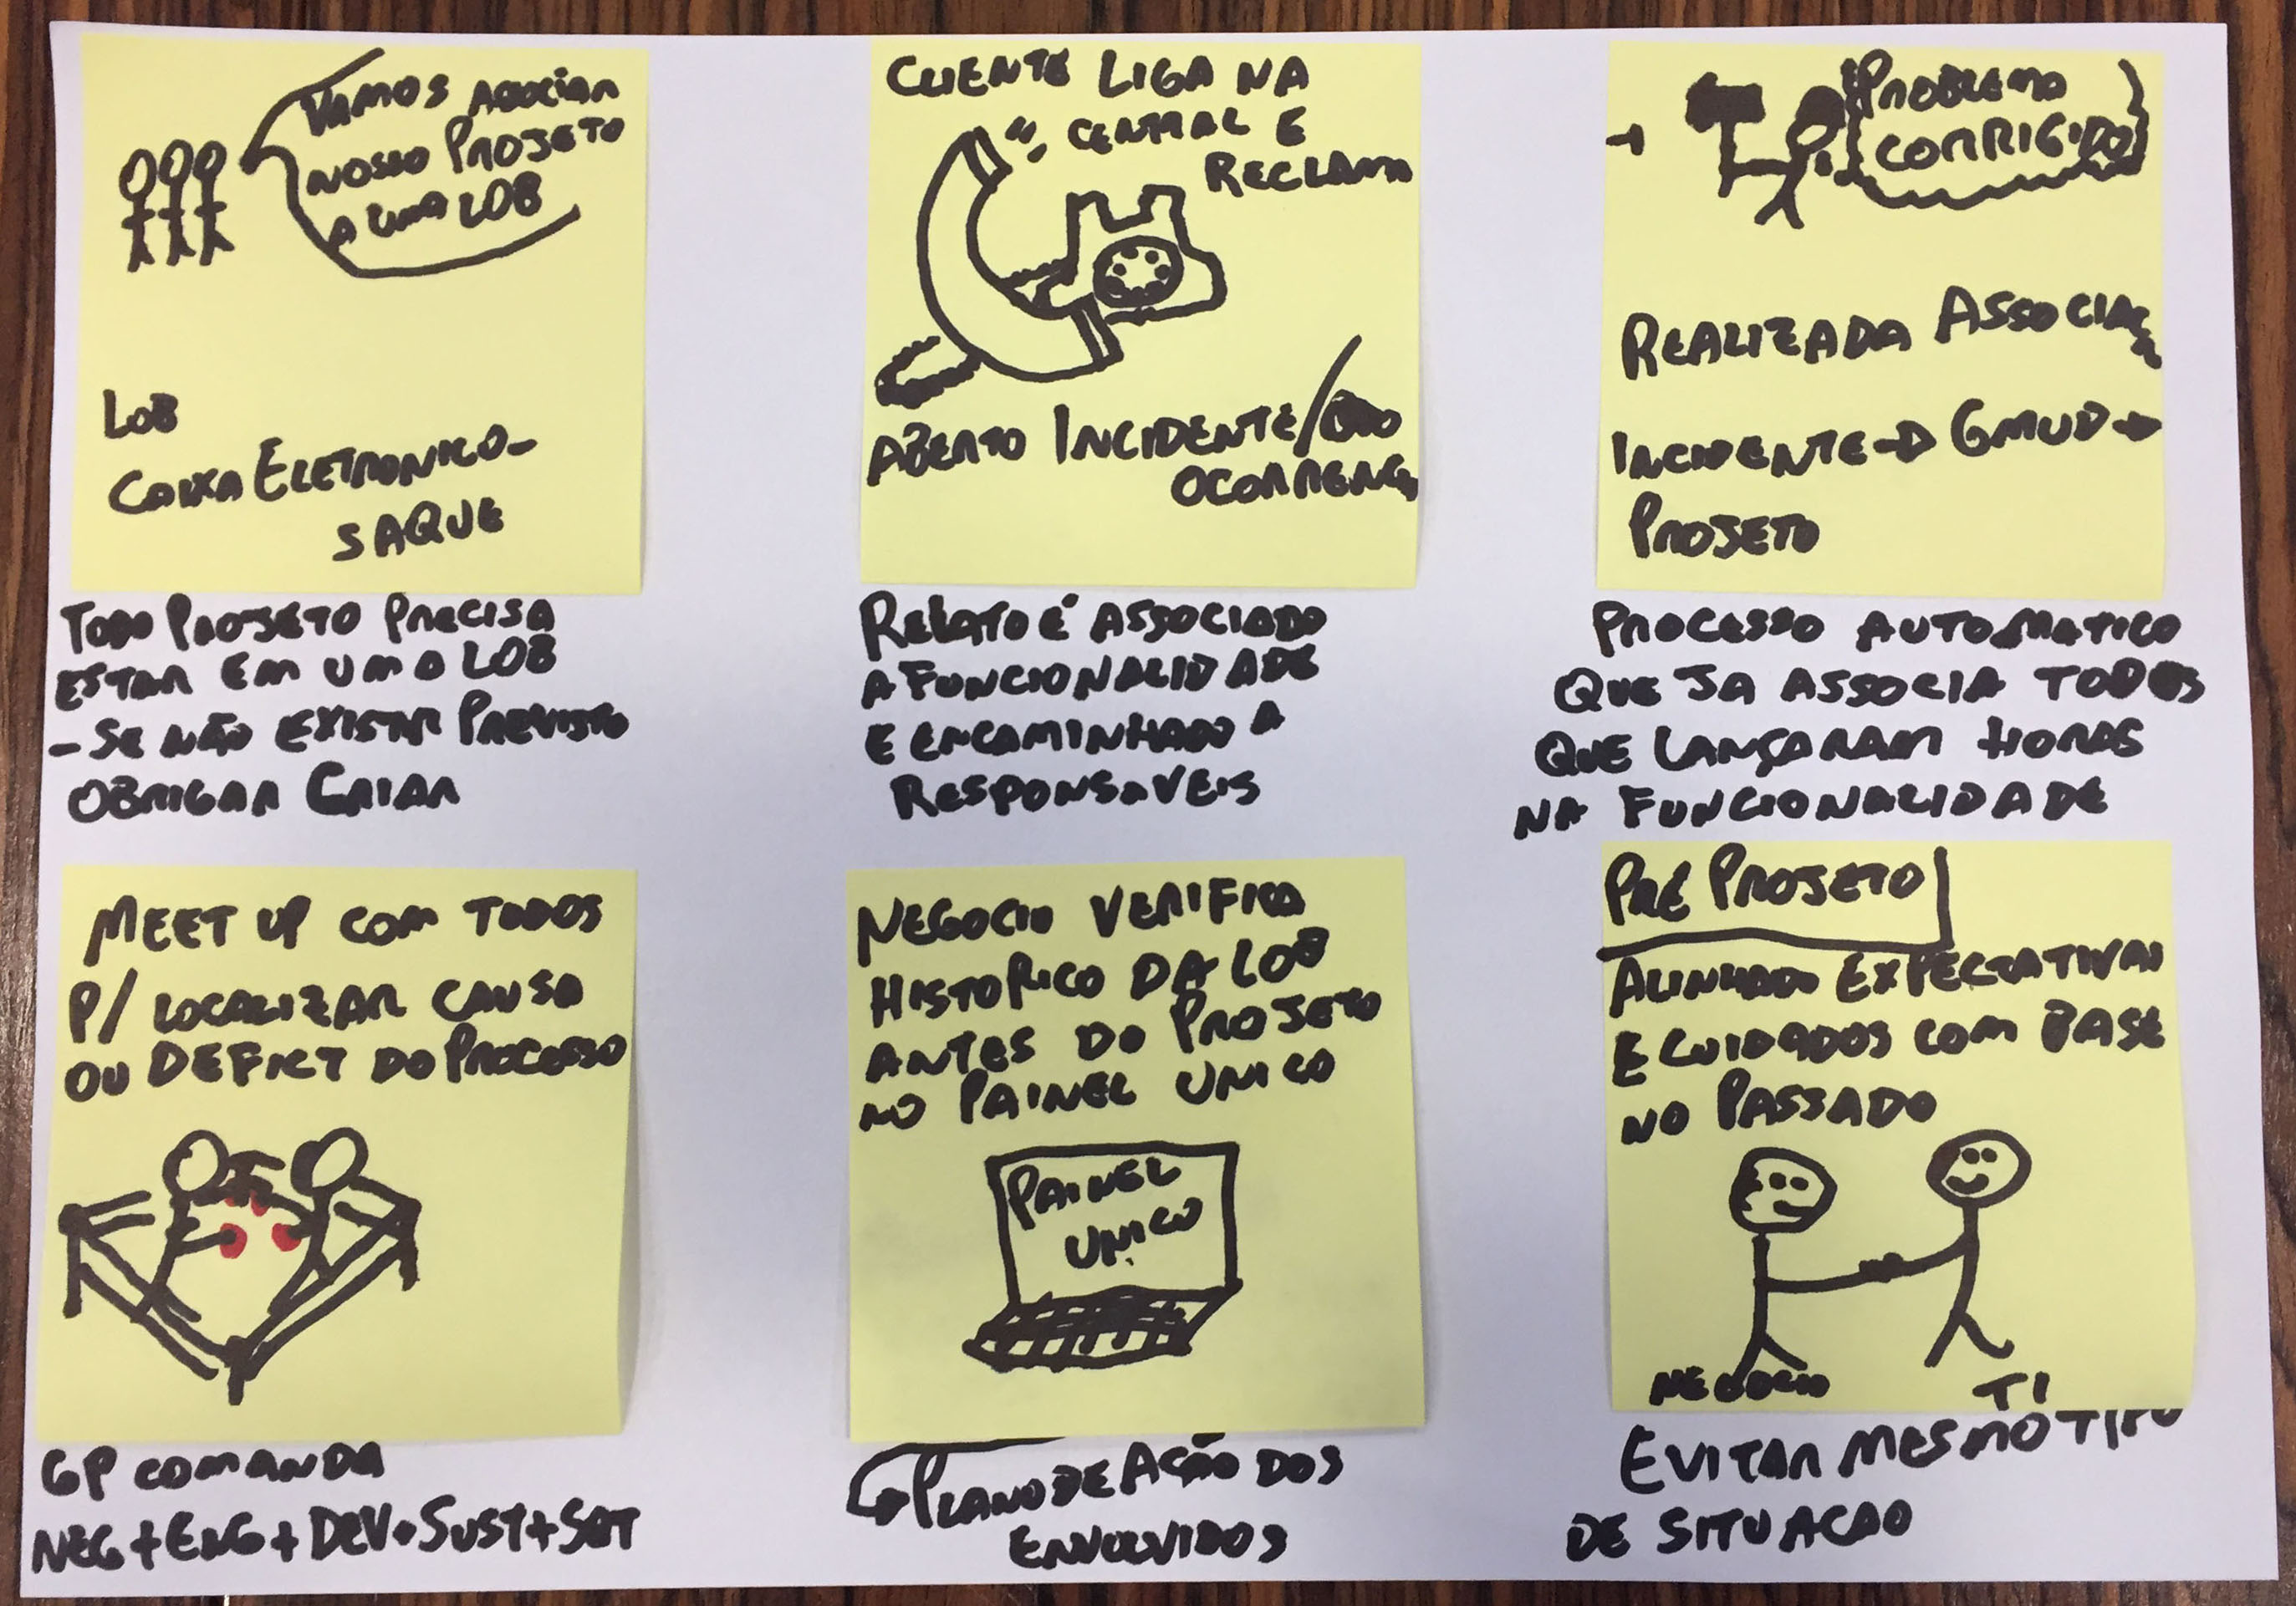 VAMOS ASOCIAR
NOSSO PROJETO
A UMA LOB
LOB
CAIXA ELETRONICO-
SAQUE
TODO PROJETO PRECISA
ESTAR EM UMA LOB
- SE NÃO EXISTIR PREVISTO
OBRIGAR CRIAR
CLIENTE LIGA NA
CENTRAL E
RECLAMA
ABERTO INCIDENTE/
OCORRENÇ
RELATO É ASSOCIADO
A FUNCIONALIDADE
E ENCAMINHADO A
RESPONSAVEIS
PROBLEMA
CORRIGIDO
REALIZADA ASSOCIAÇ
INCIDENTE → GMUD →
PROJETO
PROCESSO AUTOMATICO
QUE JA ASSOCIA TODOS
QUE LANÇARAM HORAS
NA FUNCIONALIDADE
MEET UP COM TODOS
P/ LOCALIZAR CAUSA
OU DEFICT DO PROCESSO
GP COMANDA
NEG + ENG + DEV + SUST +
NEGOCIO VERIFICA
HISTORICO DA LOB
ANTES DO PROJETO
NO PAINEL UNICO
PAINEL
UNICO
PLANO DE AÇÃO DOS
ENVOLVIDOS
PRÉ PROJETO
ALINHADO EXPECTATIVAS
E CUIDADOS COM BASE
NO PASSADO
NEGOCIO TI
EVITAR MESMO TIPO
DE SITUACAO